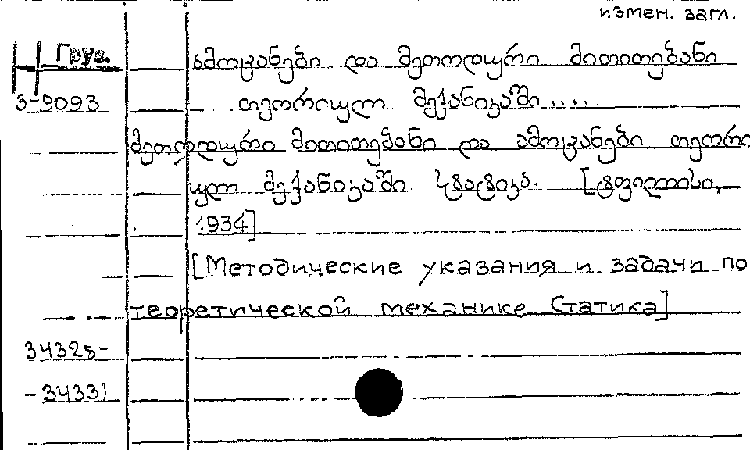 измен. загл.
Груз.
ამოცანები და მეთოდური მითითებანი
3-9093
თეორიულ მექანიკაში....
მეთოდური მითითებანი და ამოცანები თეორი
ულ მექანიკაში. სტატიკა. [ტფილისი,
1934]
[Методические указания и задачи по
теоретической механике Статика]
34328-
-34331